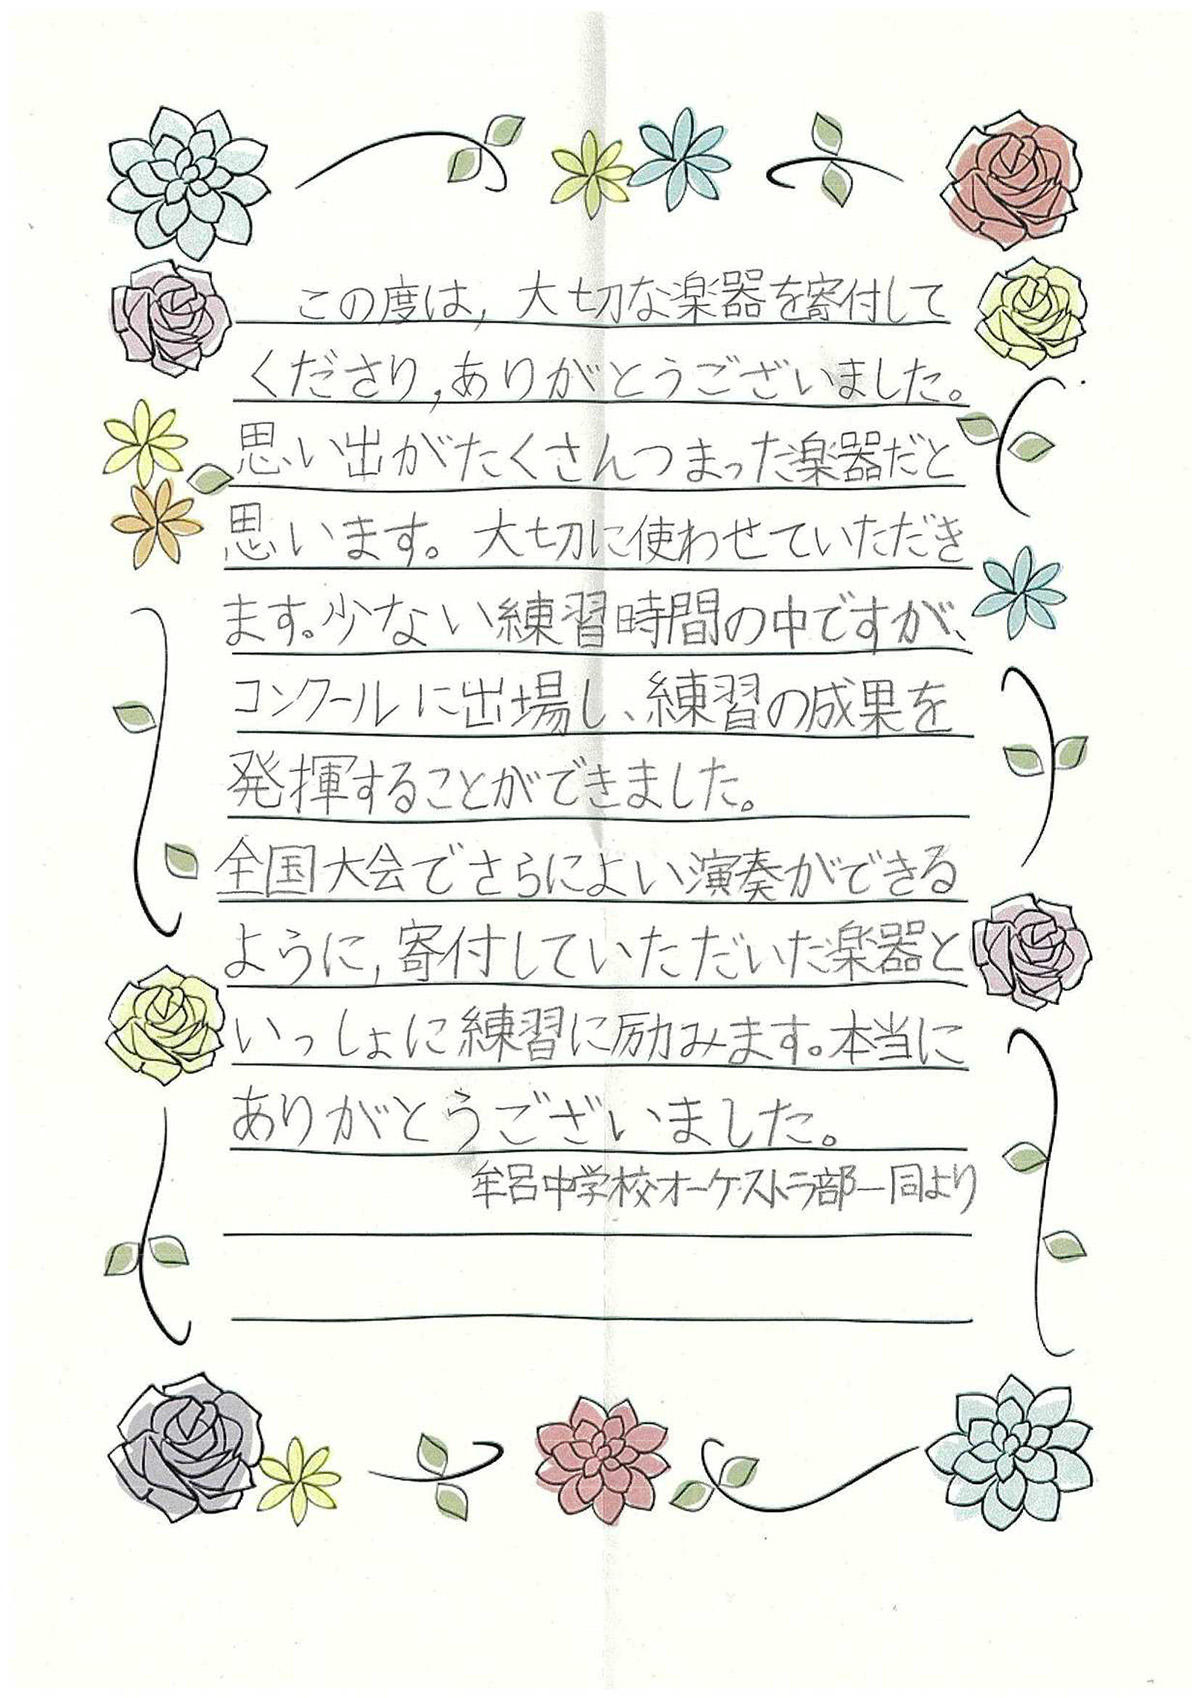 この度は,大切な楽器を寄付して
くださり,ありがとうございました。
思い出がたくさんつまった楽器だと
思います。大切に使わせていただき
ます。少ない練習時間の中ですが、
コンクールに出場し、練習の成果を
発揮することができました。
全国大会でさらによい演奏ができる
ように,寄付していただいた楽器と
いっしょに練習に励みます。本当に
ありがとうございました。
牟呂中学校オーケストラ部一同より